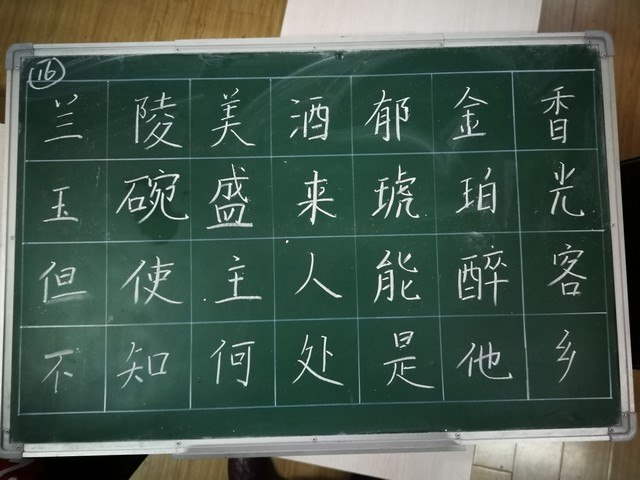 16
兰陵美酒郁金香
玉碗盛来琥珀光
但使主人能醉客
不知何处是他乡